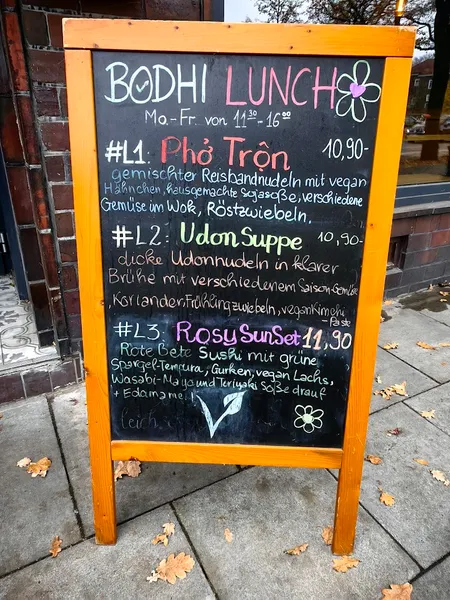 BODHI LUNCH
Mo.-Fr. von 11³⁰-16⁰⁰
#L1: Phở Trộn 10,90-
gemischter Reisbandnudeln mit vegan
Hähnchen, hausgemachte Sojasoße, verschiedene
Gemüse im Wok, Röstzwiebeln.
#L2: Udon Suppe 10,90-
dicke Udonnudeln in klarer
Brühe mit verschiedenem Saison-Gemüse
, Koriander, Frühlingzwiebeln, vegan Kimchi
-Paste
#L3: Rosy SunSet 11,90
Rote Bete Sushi mit grüne
Spargel-Tempura, Gurken, vegan Lachs,
Wasabi-Mayo und Teriyaki Soße drauf
+ Edamame!